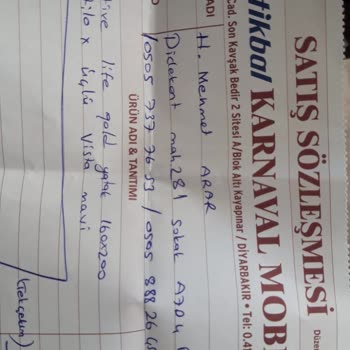 SATIŞ SÖZLEŞMESİ
Düze
tikbal KARNAVAL MOB
Cad. Son Kavşak Bedir 2 Sitesi A/Blok Altı Kayapınar / DİYARBAKIR • Tel: 0.4
ADI
H. Mehmet ARAR
mah 281 sokak
0505 737 76 / 0505 888 26
ÜRÜN ADI & TANITIMI
life gold yatak 160x200
x üçlü vista mavi